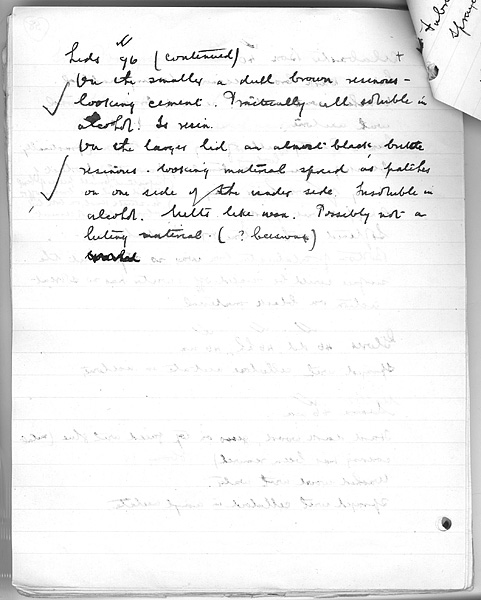 Lids 96 (continued)
On the smaller a dull brown resinous-
looking cement. Practically all soluble in
alcohol. Is resin.
On the larger lid an almost black brittle
resinous-looking material spread in patches
on one side of the under side. Insoluble in
alcohol. Melts like wax. Possibly not a
luting material. (? beeswax)